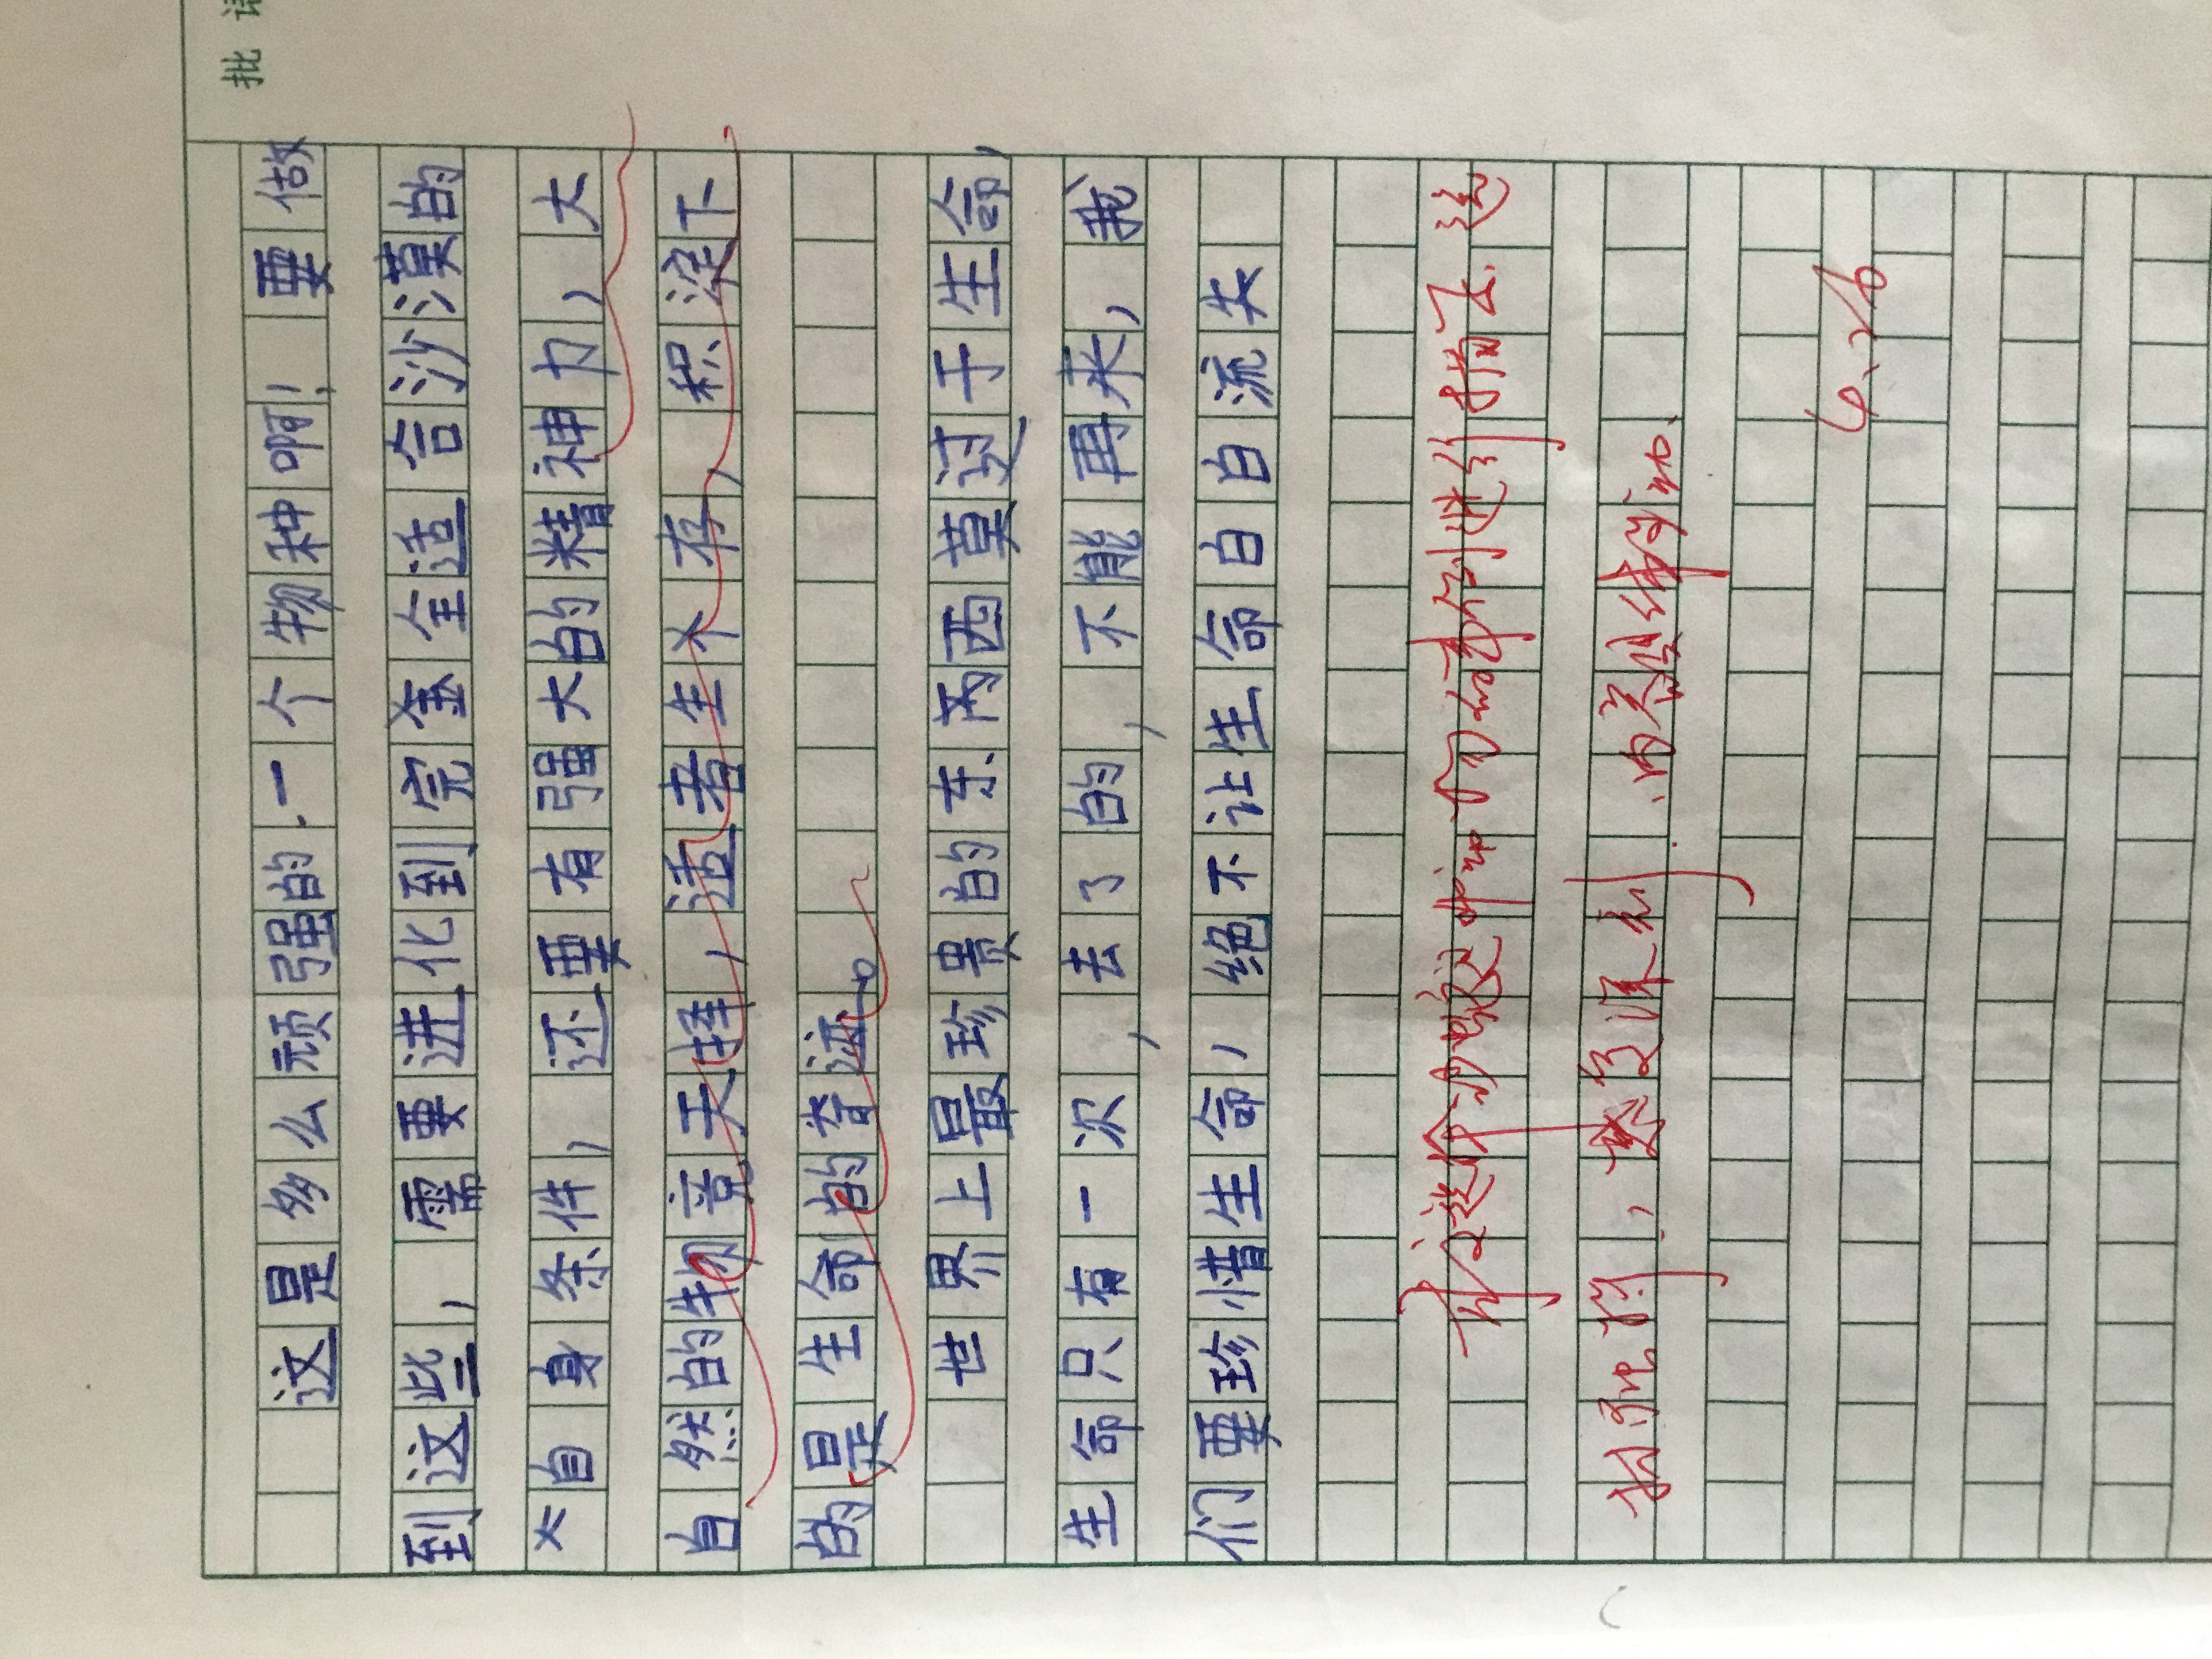 批语
这是多么顽强的一个物种啊！要做
到这些，需要进化到完全适合沙漠的
自身条件，还要有强大的精神力，大
自然的物竞天择，适者生存，积淀下
的是生命的奇迹。
世界上最珍贵的东西莫过于生命，
生命只有一次，去了的，不能再来，我
们要珍惜生命，绝不让生命白白流失
本文选择沙蜥这种动物的事例进行描写，选
材独特，感受深刻，内容具体生动。
4、26